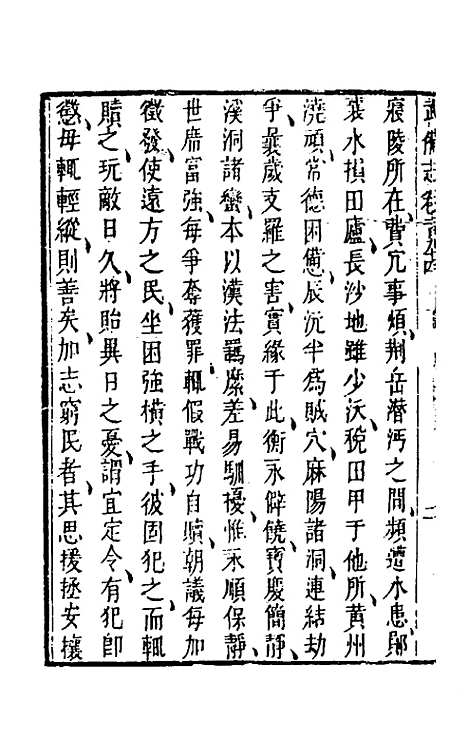 寢陵所在費冗事煩荆岳潛沔之間頻遭水患鄖
襄水損田廬長沙地雖少沃稅田甲于他所黃州
澆頑常德困憊辰沅半為賊穴麻陽諸洞連結劫
爭彝歲支羅之害實緣于此衡永僻饒寶慶簡靜
溪洞諸蠻本以漢法羈縻差易馴擾惟永順保靜
世席富強每爭奪獲罪輒假戰功自贖朝議每加
徵發使遠方之民坐困強橫之手彼固犯之而輒
贖之玩敵日久將貽異日之憂謂宜定令有犯即
懲毋輒輕縱則善矣加志窮民者其思援拯安攘